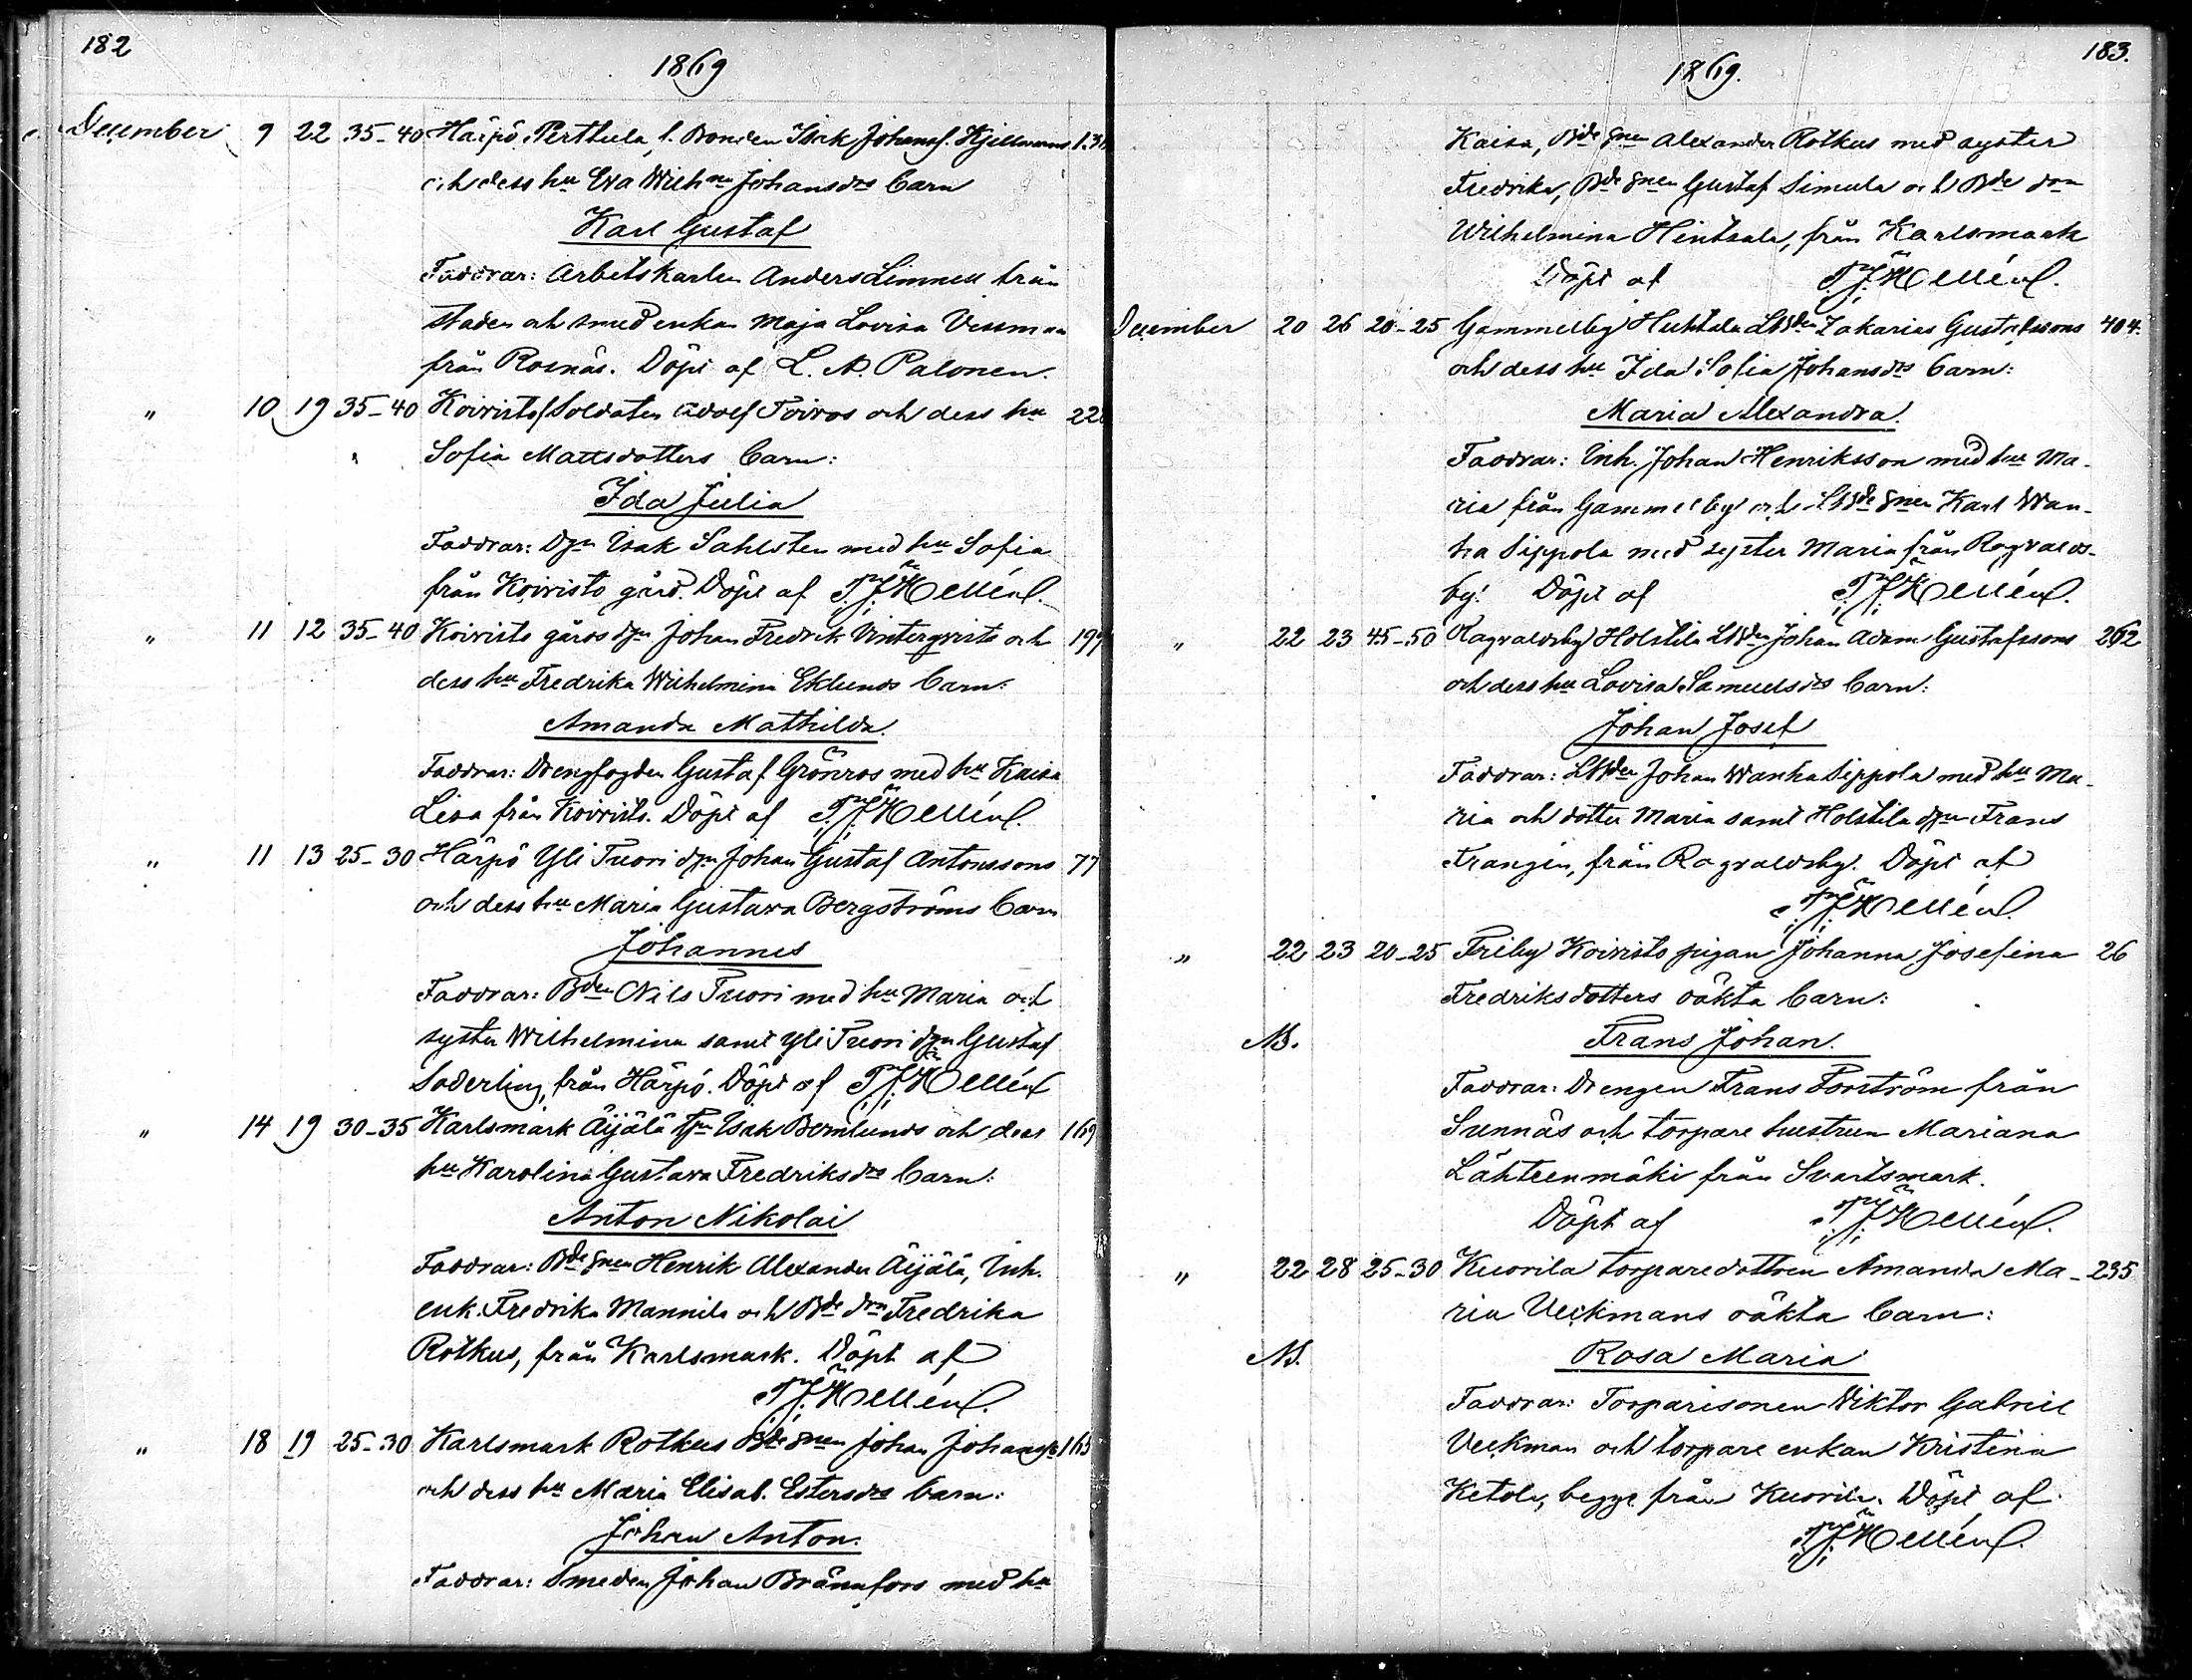 182
1869
December 9 22 35-40 Härpö Perthula, f. Bonden Isak Johans. Kjellmans
och dess hu Eva Wilhna Johansdrs barn
Karl Gustaf
Faddrar: Arbetskarlen Anders Limnell från
staden och smed enkan Maja Lovisa Vessman
från Rosnäs. Döpt af L. A. Palonen.
" 10 19 35-40 Koivisto Soldaten Adolf Toivos och dess hu 22
Sofia Mattsdotters barn:
Ida Julia
Faddrar: Dgn Isak Sahlsten med hu Sofia
från Koivisto gård. Döpt af T. J. Hellén.
" 11 12 35-40 Koivisto gårds dgn Johan Fredrik Vinterqvists och 197
dess hu Fredrika Wilhelmina Eklunds barn:
Amanda Mathilda.
Faddrar: Drengfogden Gustaf Grönros med hu Kaisa
Lisa från Koivisto. Döpt af T. J. Hellén.
" 11 13 25-30 Härpö Yli Tuori dgn Johan Gustaf Antonssons 77
och dess hu Maria Gustava Bergströms barn
Johannes
Faddrar: Bden Nils Tuori med hu Maria och
syster Wilhelmina samt Yli Tuori dgn Gustaf
Söderling, från Härpö. Döpt af T. J. Hellén
" 14 19 30-35 Karlsmark Äijälä tpn Isak Bernlunds och dess 169
hu Karolina Gustava Fredriksdrs barn:
Anton Nikolai
Faddrar: Bde snen Henrik Alexander Äijälä, Inh.
enk. Fredrika Mannila och Bde drn Fredrika
Rotkus, från Karlsmark. Döpt af
T. J. Hellén.
" 18 19 25-30 Karlsmark Rotkus Bde snen Johan Johanss 165
och dess hu Maria Elisab. Estersdrs barn:
Johan Anton.
Faddrar: Smeden Johan Brännfors med hu
183.
1869.
Kaisa, Bde snen Alexander Rotkus med syster
Fredrika, Bde snen Gustaf Simula och Bde drn
Wilhelmina Hintsala, från Karlsmark
Döpt af T. J. Hellén.
December 20 26 20-25 Gammelby Huhtala Lbden Zakarias Gustafssons 404.
och dess hu Ida Sofia Johansdrs barn:
Maria Alexandra.
Faddrar: Inh. Johan Henriksson med hu Ma-
ria från Gammelby och Lbde snen Karl Wan-
ha Sippola med syster Maria från Ragvalds-
by. Döpt af T. J. Hellén.
" 22 23 45-50 Ragvaldsby Holstila Lbden Johan Adam Gustafssons 262
och dess hu Lovisa Samuelsdrs barn:
Johan Josef
Faddrar: Lbden Johan Wanha Sippola med hu Ma-
ria och dotter Maria samt Holstila dgn Frans
Frangén, från Ragvaldsby. Döpt af
T. J. Hellén.
" 22 23 20-25 Friby Koivisto pigan Johanna Josefina 26
Fredriksdotters oäkta barn:
NB. Frans Johan.
Faddrar: Drengen Frans Forström från
Sunnäs och torpare hustrun Mariana
Lähteenmäki från Svartsmark.
Döpt af T. J. Hellén.
" 22 28 25-30 Kuorila torparedottren Amanda Ma- 235
ria Veckmans oäkta barn:
NB. Rosa Maria
Faddrar: Torparesonen Viktor Gabriel
Veckman och torpare enkan Kristina
Ketola, begge från Kuorila. Döpt af
T. J. Hellén.